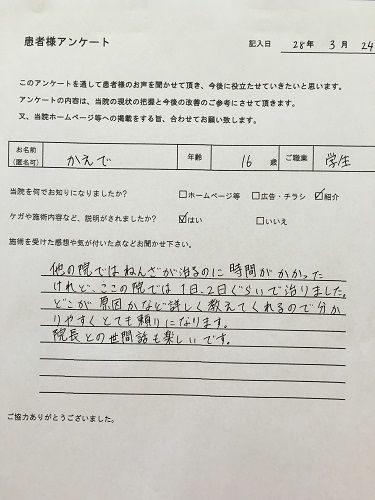 患者様アンケート
記入日 28年 3月 24
このアンケートを通して患者様のお声を聞かせて頂き、今後に役立たせていきたいと思います。
アンケートの内容は、当院の現状の把握と今後の改善のご参考にさせて頂きます。
又、当院ホームページ等への掲載をする旨、合わせてお願い致します。
お名前(匿名可) かえで 年齢 16歳 ご職業 学生
当院を何でお知りになりましたか? □ホームページ等 □広告・チラシ ☑紹介
ケガや施術内容など、説明がされましたか? ☑はい □いいえ
施術を受けた感想や気が付いた点などお聞かせ下さい。
他の院ではねんざが治るのに時間がかかった
けれど、ここの院では1日、2日ぐらいで治りました。
どこが原因かなど詳しく教えてくれるので分か
りやすくとても頼りになります。
院長との世間話も楽しいです。
ご協力ありがとうございました。